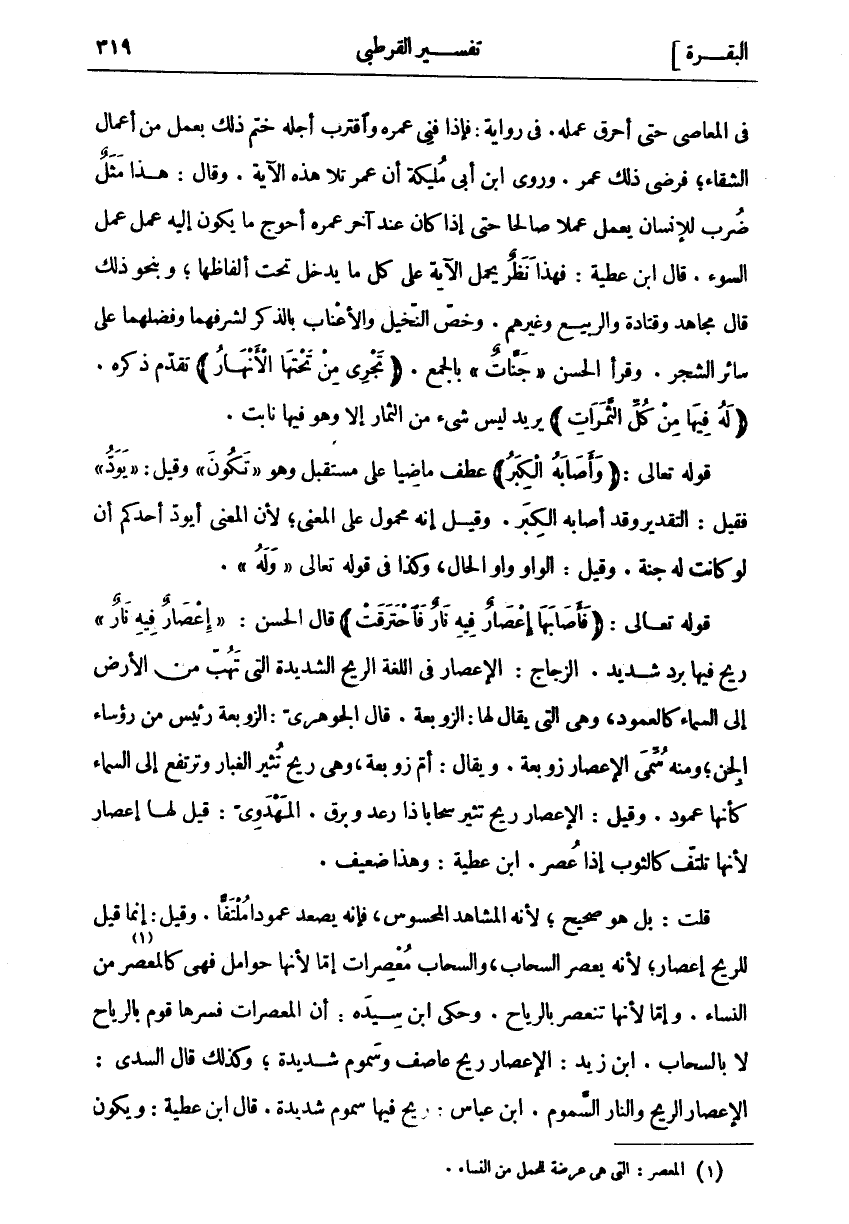 البقـــرة ]
تفســـير القرطبى
٣١٩
فى المعاصى حتى أحرق عمله. فى رواية: فإذا فَنِى عمره وٱقترب أجله ختم ذلك بعمل من أعمال
الشقاء؛ فرضى ذلك عمر . وروى ابن أبى مُليكة أن عمر تلا هذه الآية . وقال : هــذا مَثَلٌ
ضُرب للإنسان يعمل عملا صالحا حتى إذا كان عند آخر عمره أحوج ما يكون إليه عمل عمل
السوء . قال ابن عطية : فهذا نَظَرٌ يحمل الآية على كل ما يدخل تحت ألفاظها ؛ وبنحو ذلك
قال مجاهد وقتادة والربيـع وغيرهم . وخصّ النّخيل والأعْناب بالذكر لشرفهما وفضلهما على
سائر الشجر . وقرأ الحسن « جَنَّاتٌ » بالجمع . ﴿ تَجْرِى مِنْ تَحْتِهَا الْأَنْهَــارُ ﴾ تقدّم ذكره .
﴿ لَهُ فِيهَا مِنْ كُلِّ الثَّمَرَاتِ ﴾ يريد ليس شىء من الثمار إلا وهو فيها نابت .
قوله تعالى : ﴿ وَأَصَابَهُ الْكِبَرُ﴾ عطف ماضيا على مستقبل وهو «تَكُونَ» وقيل: «يَوَدُّ»
فقيل : التقدير وقد أصابه الكِبَر . وقيــل إنه محمول على المعنى؛ لأن المعنى أيودّ أحدكم أن
لو كانت له جنة . وقيل : الواو واو الحال، وكذا فى قوله تعالى « وَلَهُ » .
قوله تعــالى : ﴿ فَأَصَابَهَا إِعْصَارٌ فِيهِ نَارٌ فَٱحْتَرَقَتْ ﴾ قال الحسن : « إِعْصَارٌ فِيهِ نَارٌ »
ريح فيها برد شــديد . الزجاج : الإعصار فى اللغة الريح الشديدة التى تَهُبّ مـن الأرض
إلى السماء كالعمود، وهى التى يقال لها: الزوبعة . قال الجوهرىّ : الزوبعة رئيس من رؤساء
الجن؛ ومنه سُمِّىَ الإعصار زوبعة . ويقال : أم زوبعة، وهى ريح تُثير الغبار وترتفع إلى السماء
كأنها عمود . وقيل : الإعصار ريح تثير سحابا ذا رعد وبرق . المَهْدَوِىّ : قيل لهــا إعصار
لأنها تلتفّ كالثوب إذا عُصر . ابن عطية : وهذا ضعيف .
قلت : بل هو صحيح ؛ لأنه المشاهد المحسوس، فإنه يصعد عمودا مُلْتَفًّا . وقيل: إنما قيل
للريح إعصار؛ لأنه يعصر السحاب، والسحاب مُعْصِرات إمّا لأنها حوامل فهى كالمعصر (١) من
النساء . وإمّا لأنها تنعصر بالرياح . وحكى ابن سِــيدَه : أن المعصرات فسرها قوم بالرياح
لا بالسحاب . ابن زيد : الإعصار ريح عاصف وسَموم شــديدة ؛ وكذلك قال السدى :
الإعصار الريح والنار السَّموم . ابن عباس : ريح فيها سموم شديدة . قال ابن عطية : ويكون
(١) المعصر : التى هى عرضة للحمل من النساء .